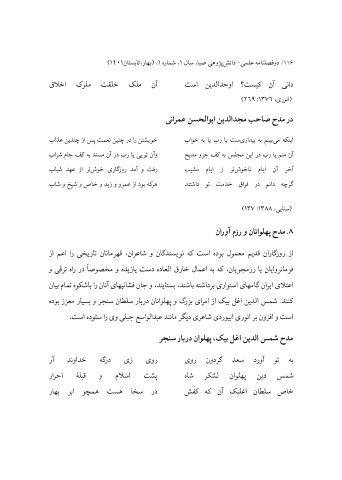 ۱۱۶/ دوفصلنامه علمی- دانش‌پژوهی صبا/ سال ۱، شماره ۱، (بهار، تابستان۱۴۰۱)
دانی آن کیست؟ اوحدالدین است آن ملک خلقت ملوک اخلاق
(انوری، ۱۳۷۶: ۲۶۹)
در مدح صاحب مجدالدین ابوالحسن عمرانی
اینکه می‌بینم به بیداریست یا رب یا به خواب خویشتن را در چنین نعمت پس از چندین عذاب
آن منم یا رب در این مجلس به کف جزو مدیح وان تویی یا رب در آن مسند به کف جام شراب
آخر آن ایام ناخوش‌تر ز ایام مشیب رفت و آمد روزگاری خوش‌تر از عهد شباب
گرچه دائم در فراق خدمت تو داشتند هرکه بود از عمرو و زید و خاص و شیخ و شاب
(سنایی، ۱۳۸۸: ۱۳۷)
۸. مدح پهلوانان و رزم آوران
از روزگاران قدیم معمول بوده است که نویسندگان و شاعران، قهرمانان تاریخی را اعم از
فرمانروایان یا رزمجویان، که به اعمال خارق العاده دست یازیده و مخصوصاً در راه ترقی و
اعتلای ایران گامهای استواری برداشته باشند، بستایند، و جان فشانیهای آنان را باشکوه تمام بیان
کنند. شمس الدین اغل بیک از امرای بزرگ و پهلوانان دربار سلطان سنجر و بسیار معزز بوده
است و افزون بر انوری ابیوردی شاعری دیگر مانند عبدالواسع جبلی وی را ستوده است.
مدح شمس الدین اغل بیک، پهلوان دربار سنجر
به تو آورد سعد گردون روی روی زی درگه خداوند آر
شمس دین پهلوان لشکر شاه پشت اسلام و قبلهٔ احرار
خاص سلطان اغلبک آن که کفش در سخا هست همچو ابر بهار